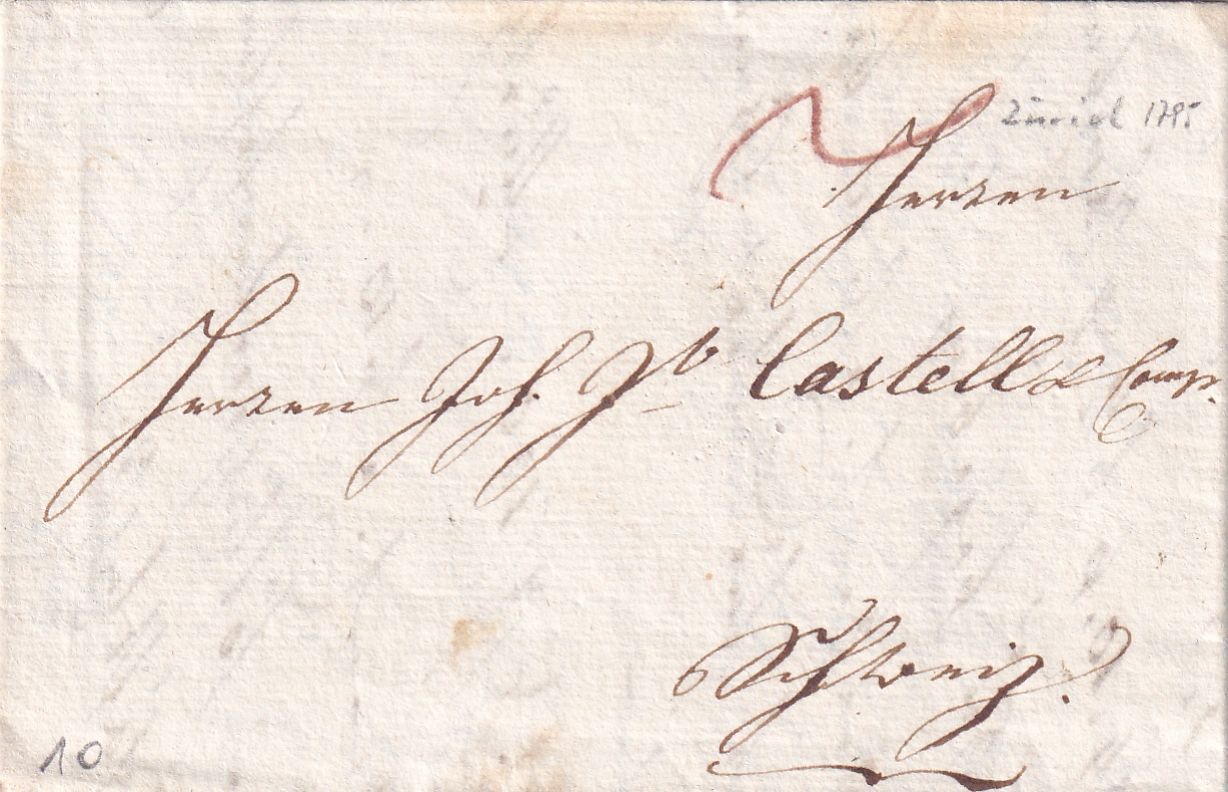 Zürich 1795
Herren
Herren Joh. Jb Castell & Comp.
Schweiz.
10